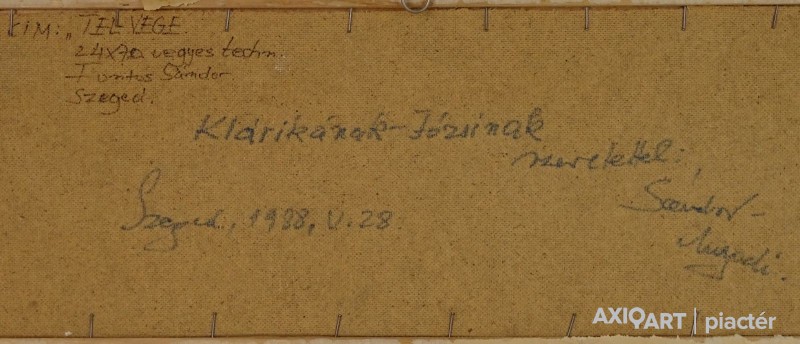 CÍM: „TÉL VÉGE
24x70 vegyes techn.
Fontos Sándor
Szeged.
Klárikának-Józsinak
szeretettel:
Sándor-
Szeged, 1988, V. 28.
AXIOART | piactér